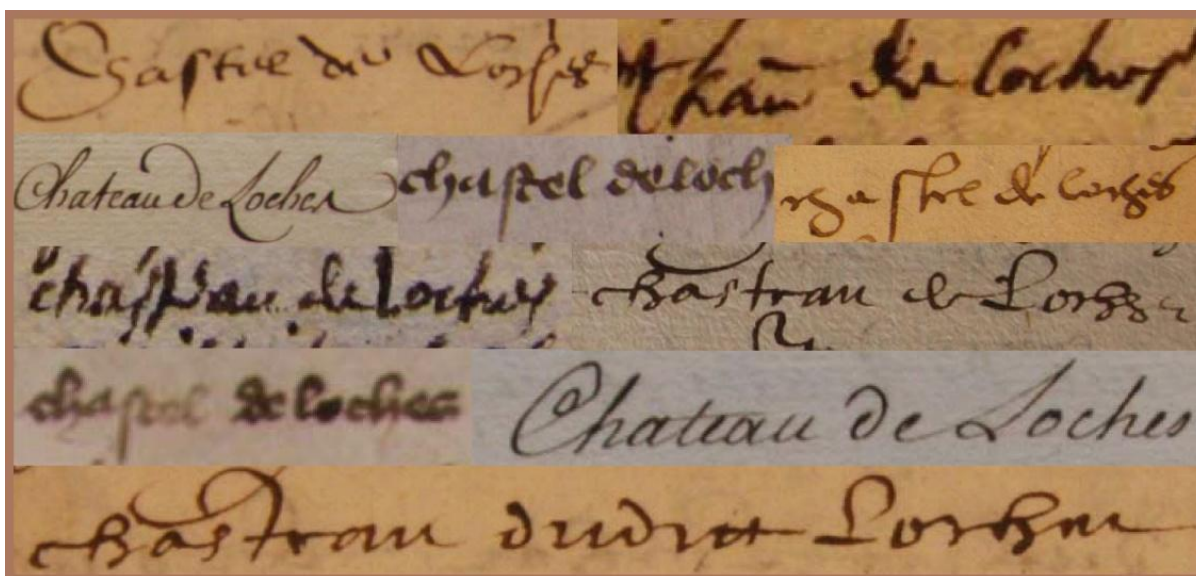 Chastel de Loches
Chau de loches
Chateau de Loches
chastel de loch
chastel de loches
chasteau de Loches
chasteau de Loches
chastel de loches
Chateau de Loches
chasteau dudict Loches